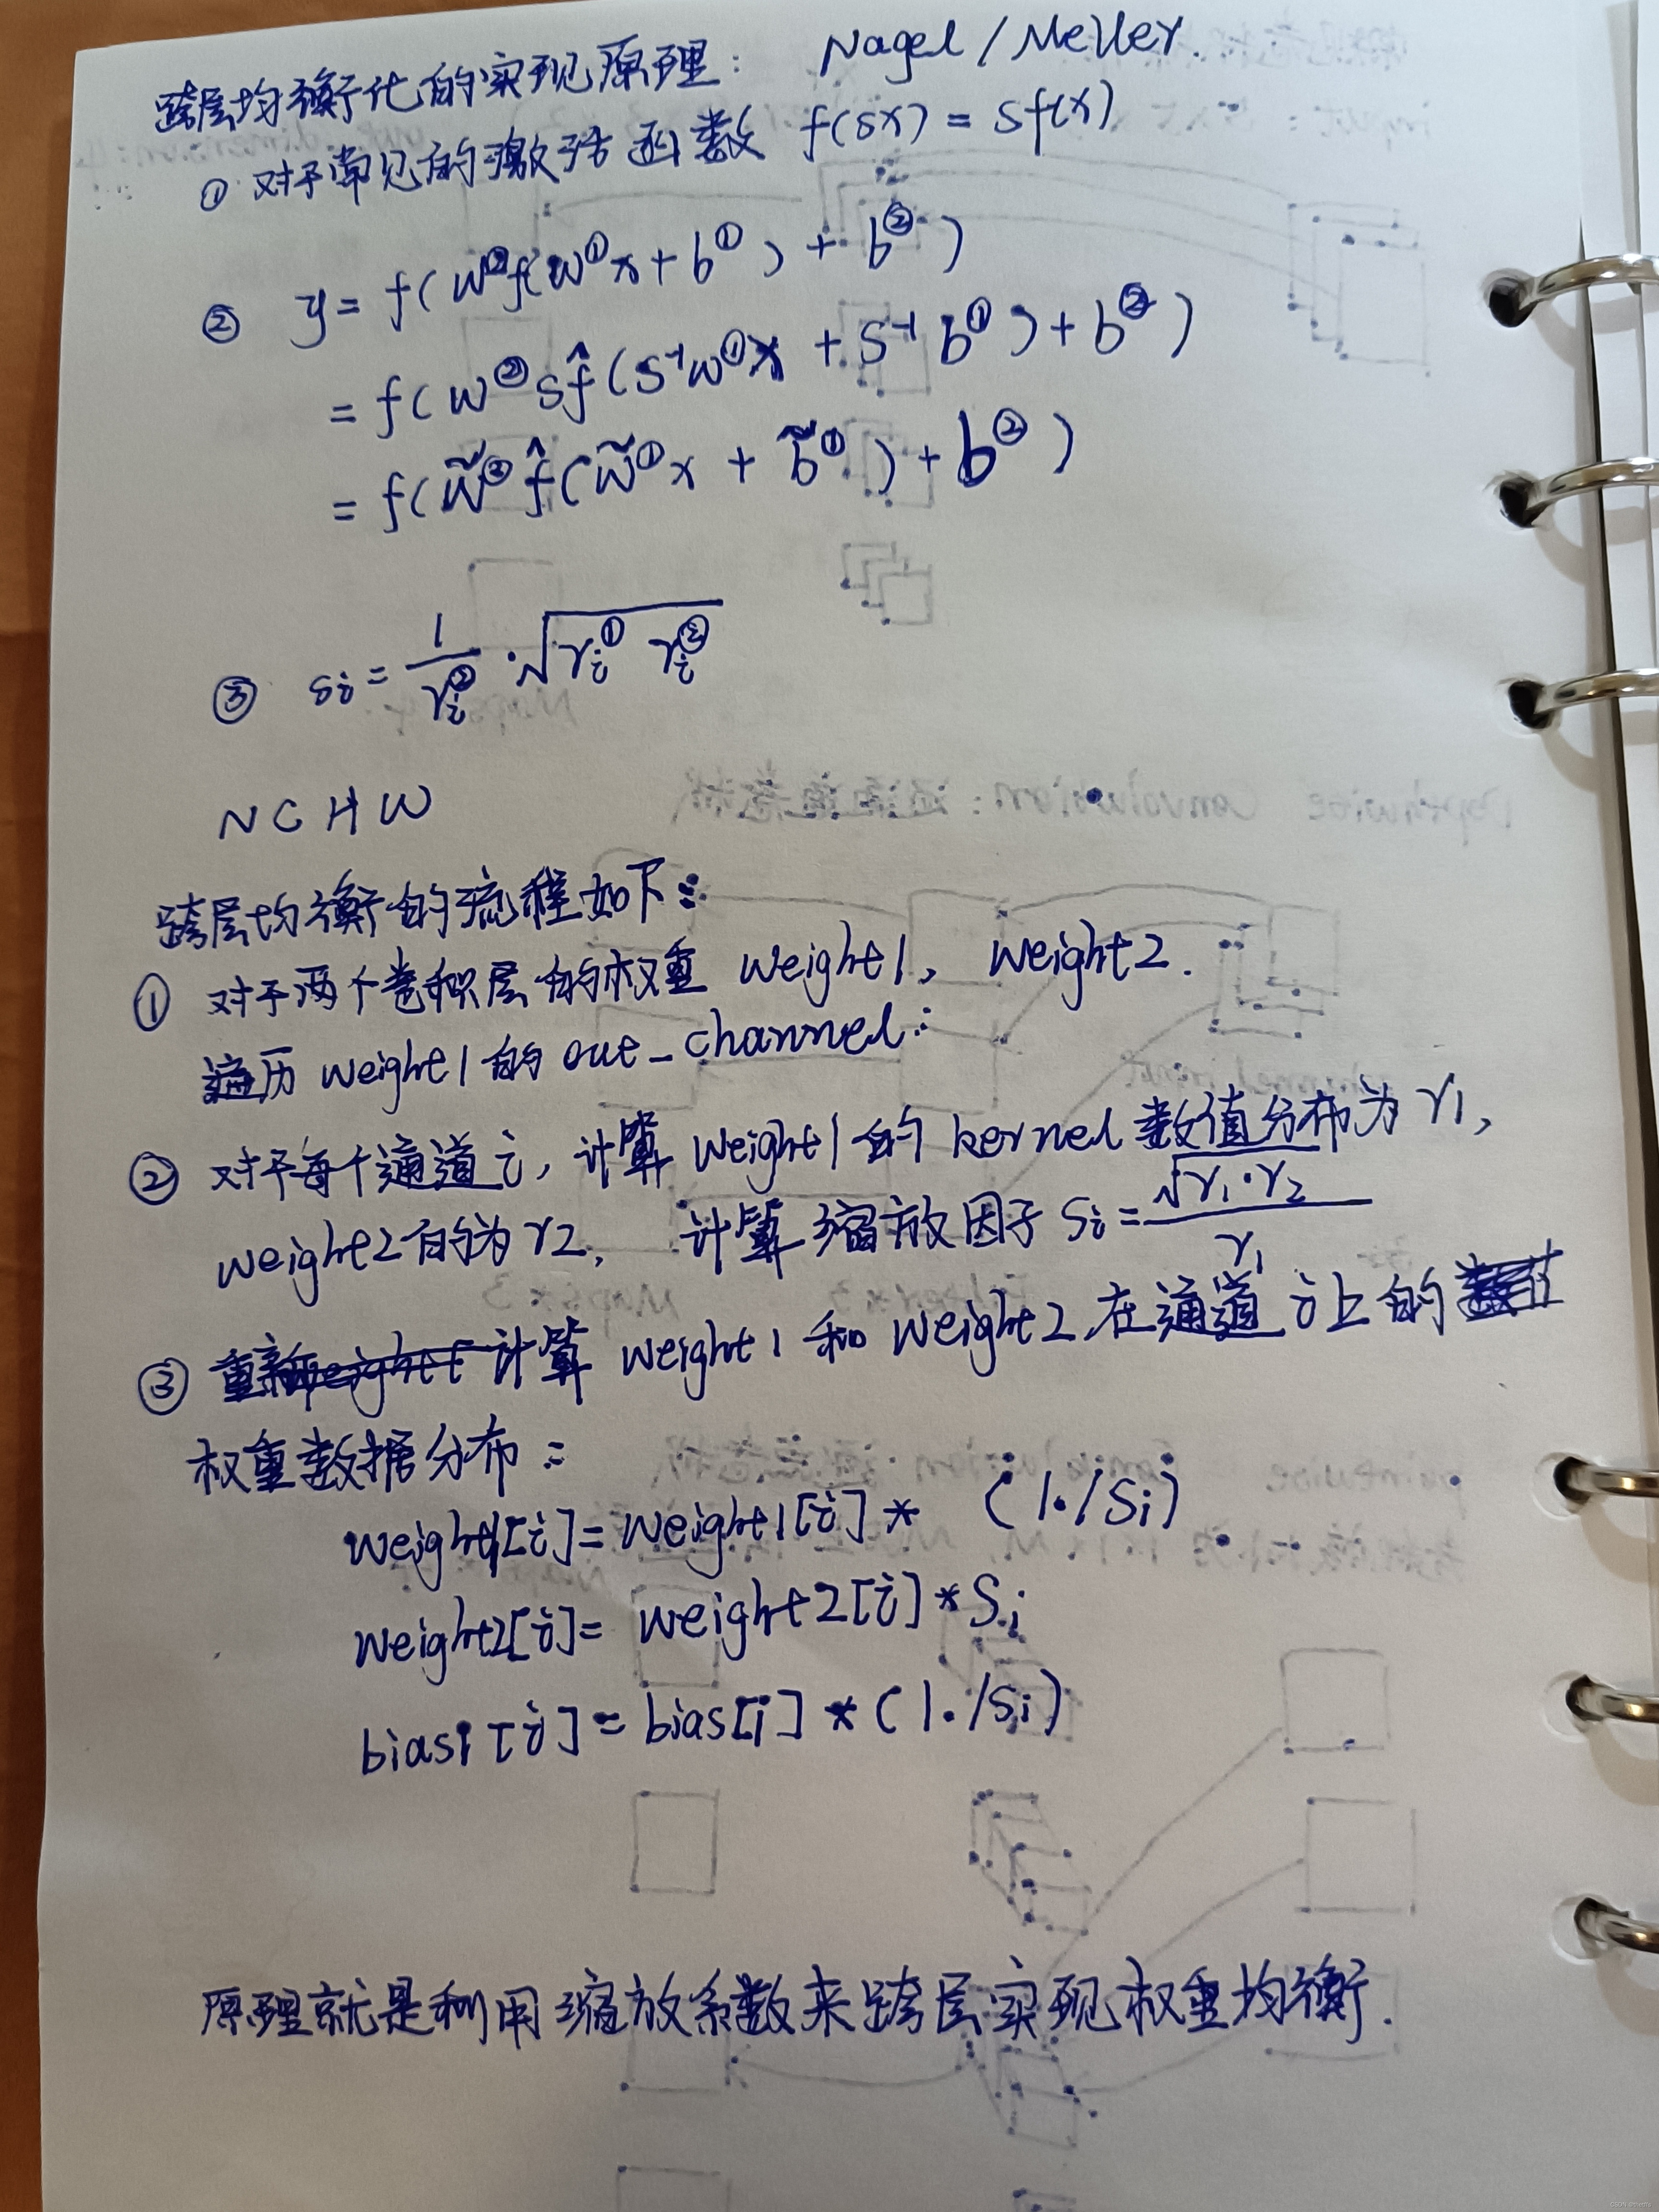 跨层均衡化的实现原理: Nagel / Meller.
① 对于常见的激活函数 f(sx) = sf(x)
② y = f( w②f(w①x + b① ) + b② )
= f( w②sf̂(s⁻¹w①x + s⁻¹b①) + b② )
= f( w̃②f̂( w̃①x + b̃① ) + b② )
③ si = 1/ri② · √(ri① ri②)
N C H W
跨层均衡的流程如下:
① 对于两个卷积层的权重 weight1, weight2.
遍历 weight1 的 out_channel:
② 对于每个通道 i, 计算 weight1 的 kernel 数值分布为 r1,
weight2的为 r2, 计算缩放因子 Si = √(r1·r2) / r1
③ 重新计算 weight1 和 weight2 在通道 i 上的
权重数据分布:
weight1[i] = weight1[i] * (1./Si)
weight2[i] = weight2[i] * Si
bias1[i] = bias[i] * (1./Si)
原理就是利用缩放系数来跨层实现权重均衡.